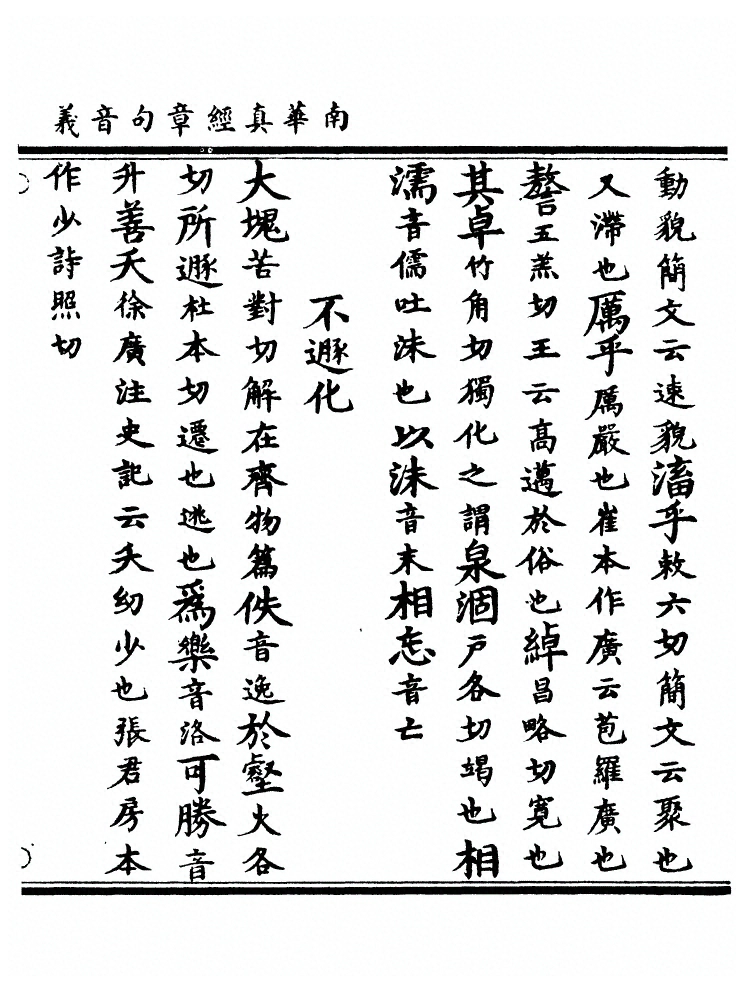 南華真經章句音義
動貌簡文云速貌滀乎敕六切簡文云聚也
又滯也厲乎厲嚴也崔本作廣云苞羅廣也
謷五羔切王云高邁於俗也綽昌略切寬也
其卓竹角切獨化之謂泉涸戶各切竭也相
濡音儒吐沫也以沫音末相忘音亡
不遯化
大塊苦對切解在齊物篇佚音逸於壑火各
切所遯杜本切遷也逃也爲樂音洛可勝音
升善夭徐廣注史記云夭幼少也張君房本
作少詩照切